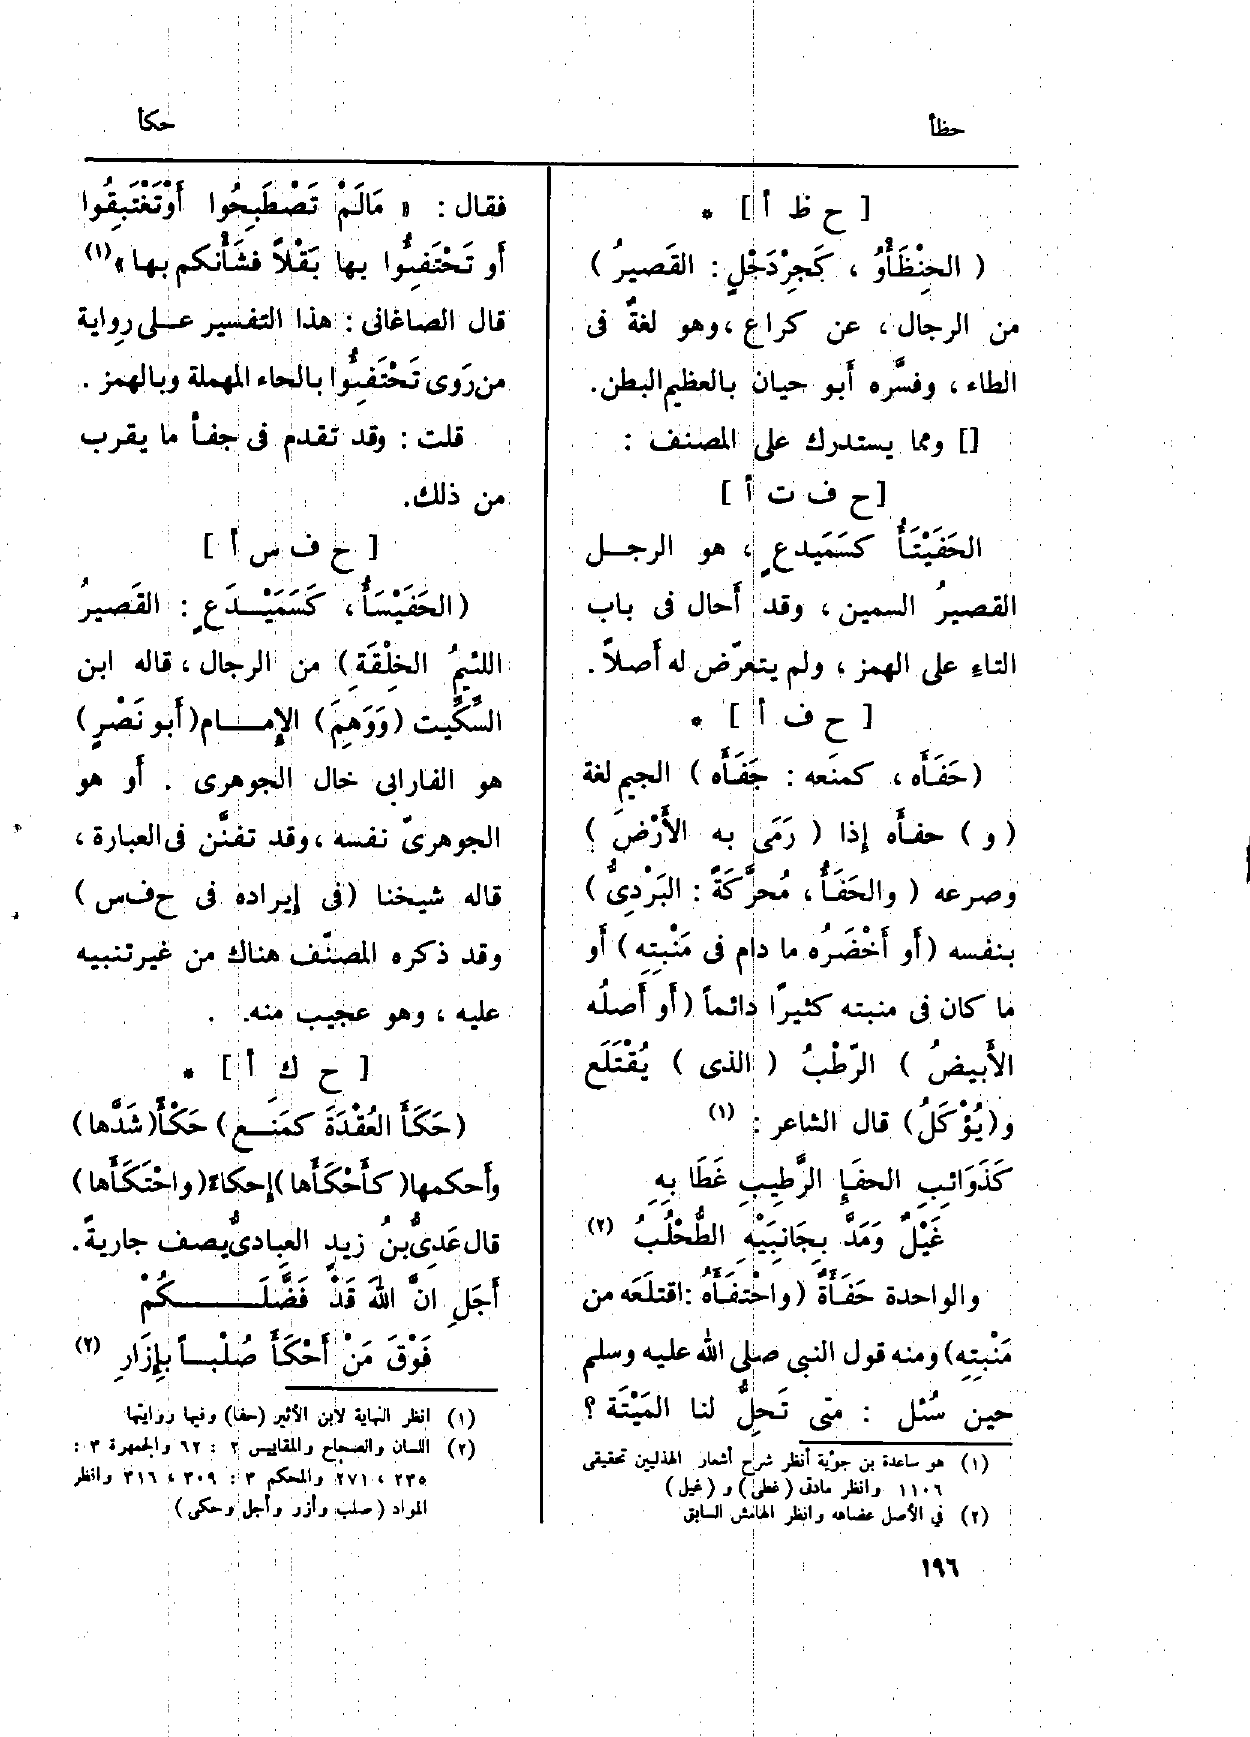 حظأ
حكأ
[ ح ظ أ ] *
( الحِنْظَأْوُ ، كَجِرْدَحْلٍ : القَصيرُ )
من الرجال ، عن كراع ، وهو لغةٌ فى
الطاء ، وفسَّره أبو حيان بالعظيم البطن .
[] ومما يستدرك على المصنف :
[ ح ف ت أ ]
الحَفَيْتَأُ كسَمَيدعٍ ، هو الرجـل
القصيرُ السمين ، وقد أحال فى باب
التاء على الهمز ، ولم يتعرّض له أصلاً .
[ ح ف أ ] *
( حَفَأَه ، كمنَعه : جَفَأَه ) الجيم لغة
( و ) حفأَه إذا ( رَمَى به الأَرْضَ )
وصرعه ( والحَفَأُ ، مُحرَّكَةً : البَرْدِىُّ )
بنفسه ( أو أَخْضَرُه ما دام فى مَنْبِتِه ) أو
ما كان فى منبته كثيرًا دائماً ( أو أَصلُه
الأَبيضُ ) الرّطْبُ ( الذى ) يُقْتَلَع
و ( يُؤْكَلُ ) قال الشاعر : (١)
كَذَوَائِبِ الحفَإِ الرَّطِيبِ غَطَا بِهِ
غَيْلٌ وَمَدَّ بِجَانِبَيْهِ الطُّحْلُبُ (٢)
والواحدة حَفَأَةٌ ( واحْتفَأَهُ : اقتلَعَه من
مَنْبِتِه ) ومنه قول النبى صلى الله عليه وسلم
حين سُئل : متى تَحِلُّ لنا المَيْتَة ؟
(١) هو ساعدة بن جؤية أنظر شرح أشعار الهذليين تحقيقى
١١٠٦ وانظر مادتى ( غطى ) و ( غيل )
(٢) في الأصل عضاهه وانظر الهامش السابق
فقال : « مَالَمْ تَصْطَبِحُوا أَوْتَغْتَبِقُوا
أو تَحْتَفِئُوا بها بَقْلاً فشَأْنكم بها » (١)
قال الصاغانى : هذا التفسير عـلى رواية
من رَوى تَحْتَفِئُوا بالحاء المهملة وبالهمز .
قلت : وقد تقدم فى جفأ ما يقرب
من ذلك .
[ ح ف س أ ]
( الحَفَيْسَأُ ، كَسَمَيْـدَعٍ : القَصيرُ
اللئيمُ الخلْقَةِ ) من الرجال ، قاله ابن
السِّكِّيت ( وَوَهِمَ ) الإمـام ( أَبو نَصْرٍ )
هو الفارابى خال الجوهرى . أو هو
الجوهرىّ نفسه ، وقد تفنَّن فى العبارة ،
قاله شيخنا ( فى إيراده فى ح ف س )
وقد ذكره المصنّف هناك من غير تنبيه
عليه ، وهو عجيب منه .
[ ح ك أ ] *
( حَكَأَ العُقْدَةَ كمَنَـع ) حَكْأً ( شَدَّها )
وأَحكمها ( كأَحْكَأَها ) إحكاءً ( واحْتَكَأَها )
قال عَدِىُّ بنُ زيدٍ العِبادِىُّ يصف جاريةً .
أَجَلِ انَّ اللهَ قَدْ فَضَّلَـكُمْ
فَوْقَ مَنْ أَحْكَأَ صُلْبـاً بإِزَارِ (٢)
(١) انظر النهاية لابن الأثير ( حفا ) وفيها روايتها
(٢) اللسان والصحاح والمقاييس ٢ : ٦٢ والجمهرة ٣ :
٢٣٥ ، ٢٧١ والمحكم ٣ : ٣٠٩ ، ٣١٦ وانظر
المواد ( صلب وأزر وأجل وحكى )
١٩٦